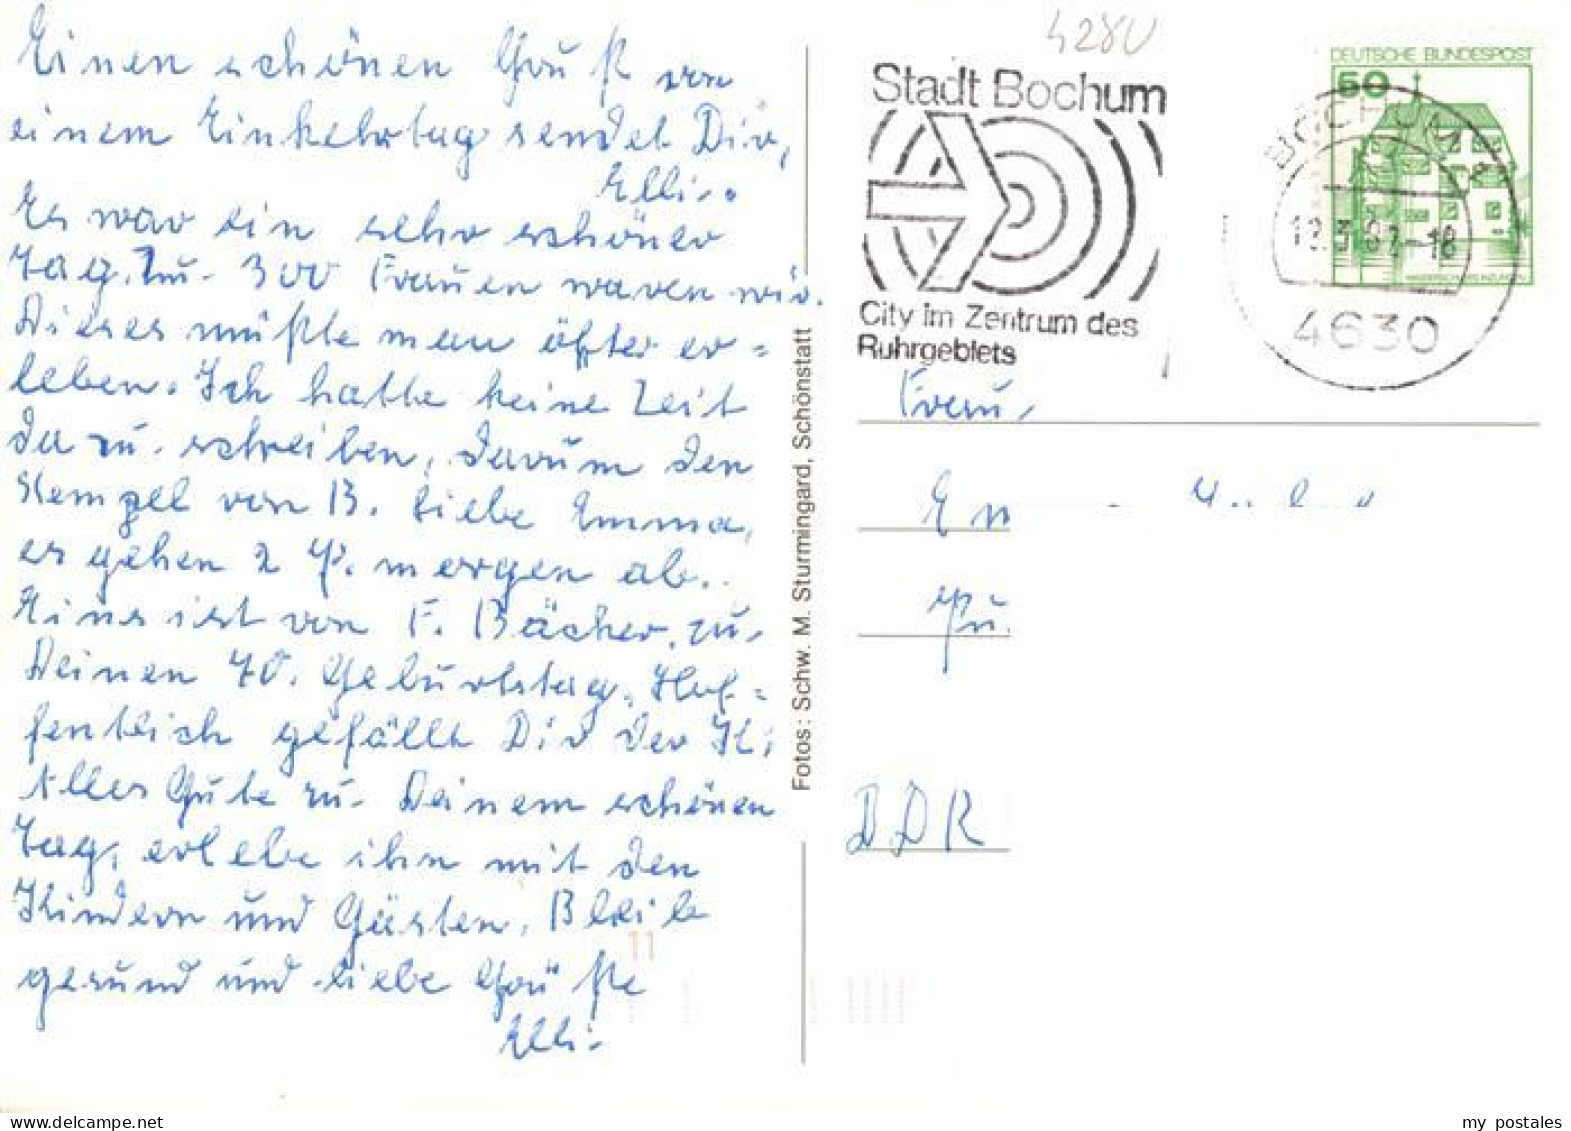 Einen schönen Gruß von
einem Einkehrtag sendet Dir,
Elli.
Es war ein sehr schöner
Tag. Zu 300 Frauen waren wir.
Dieses müßte man öfter er=
leben. Ich hatte keine Zeit
da zu schreiben, darum den
Stempel von B. Liebe Emma,
es gehen 2 P. morgen ab.
Eins ist von F. Bächer, zu
Deinen 70. Geburtstag. Hof=
fentlich gefällt Dir der K.
Alles Gute zu Deinem schönen
Tag, erlebe ihn mit den
Kindern und Gästen. Bleib
gesund und liebe Grüße
Elli.
Fotos: Schw. M. Sturmingard, Schönstatt
4280
Stadt Bochum
City im Zentrum des
Ruhrgebiets
DEUTSCHE BUNDESPOST
50
BOCHUM
4630
Frau
DDR
11
my postales